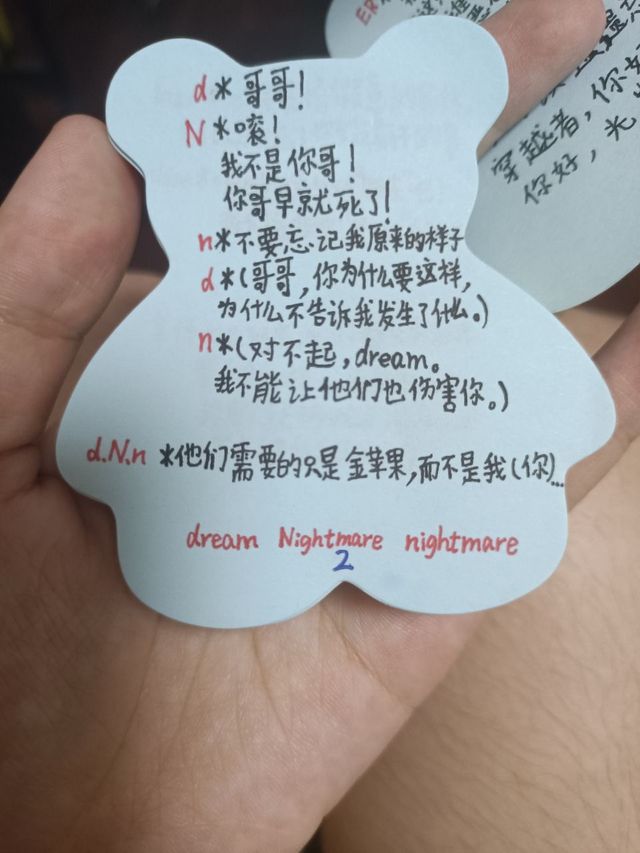 d＊哥哥！
N＊滚！
我不是你哥！
你哥早就死了！
n＊不要忘记我原来的样子
d＊(哥哥，你为什么要这样，
为什么不告诉我发生了什么。)
n＊(对不起，dream。
我不能让他们也伤害你。)
d.N.n ＊他们需要的只是金苹果，而不是我(你)...
dream Nightmare nightmare
2
ER
穿越者，你好
你好，光